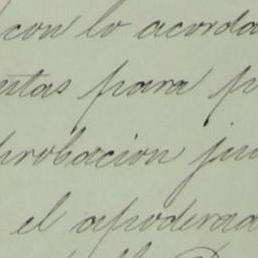 con lo acorda
ntas para p
probacion ju
el apoderad